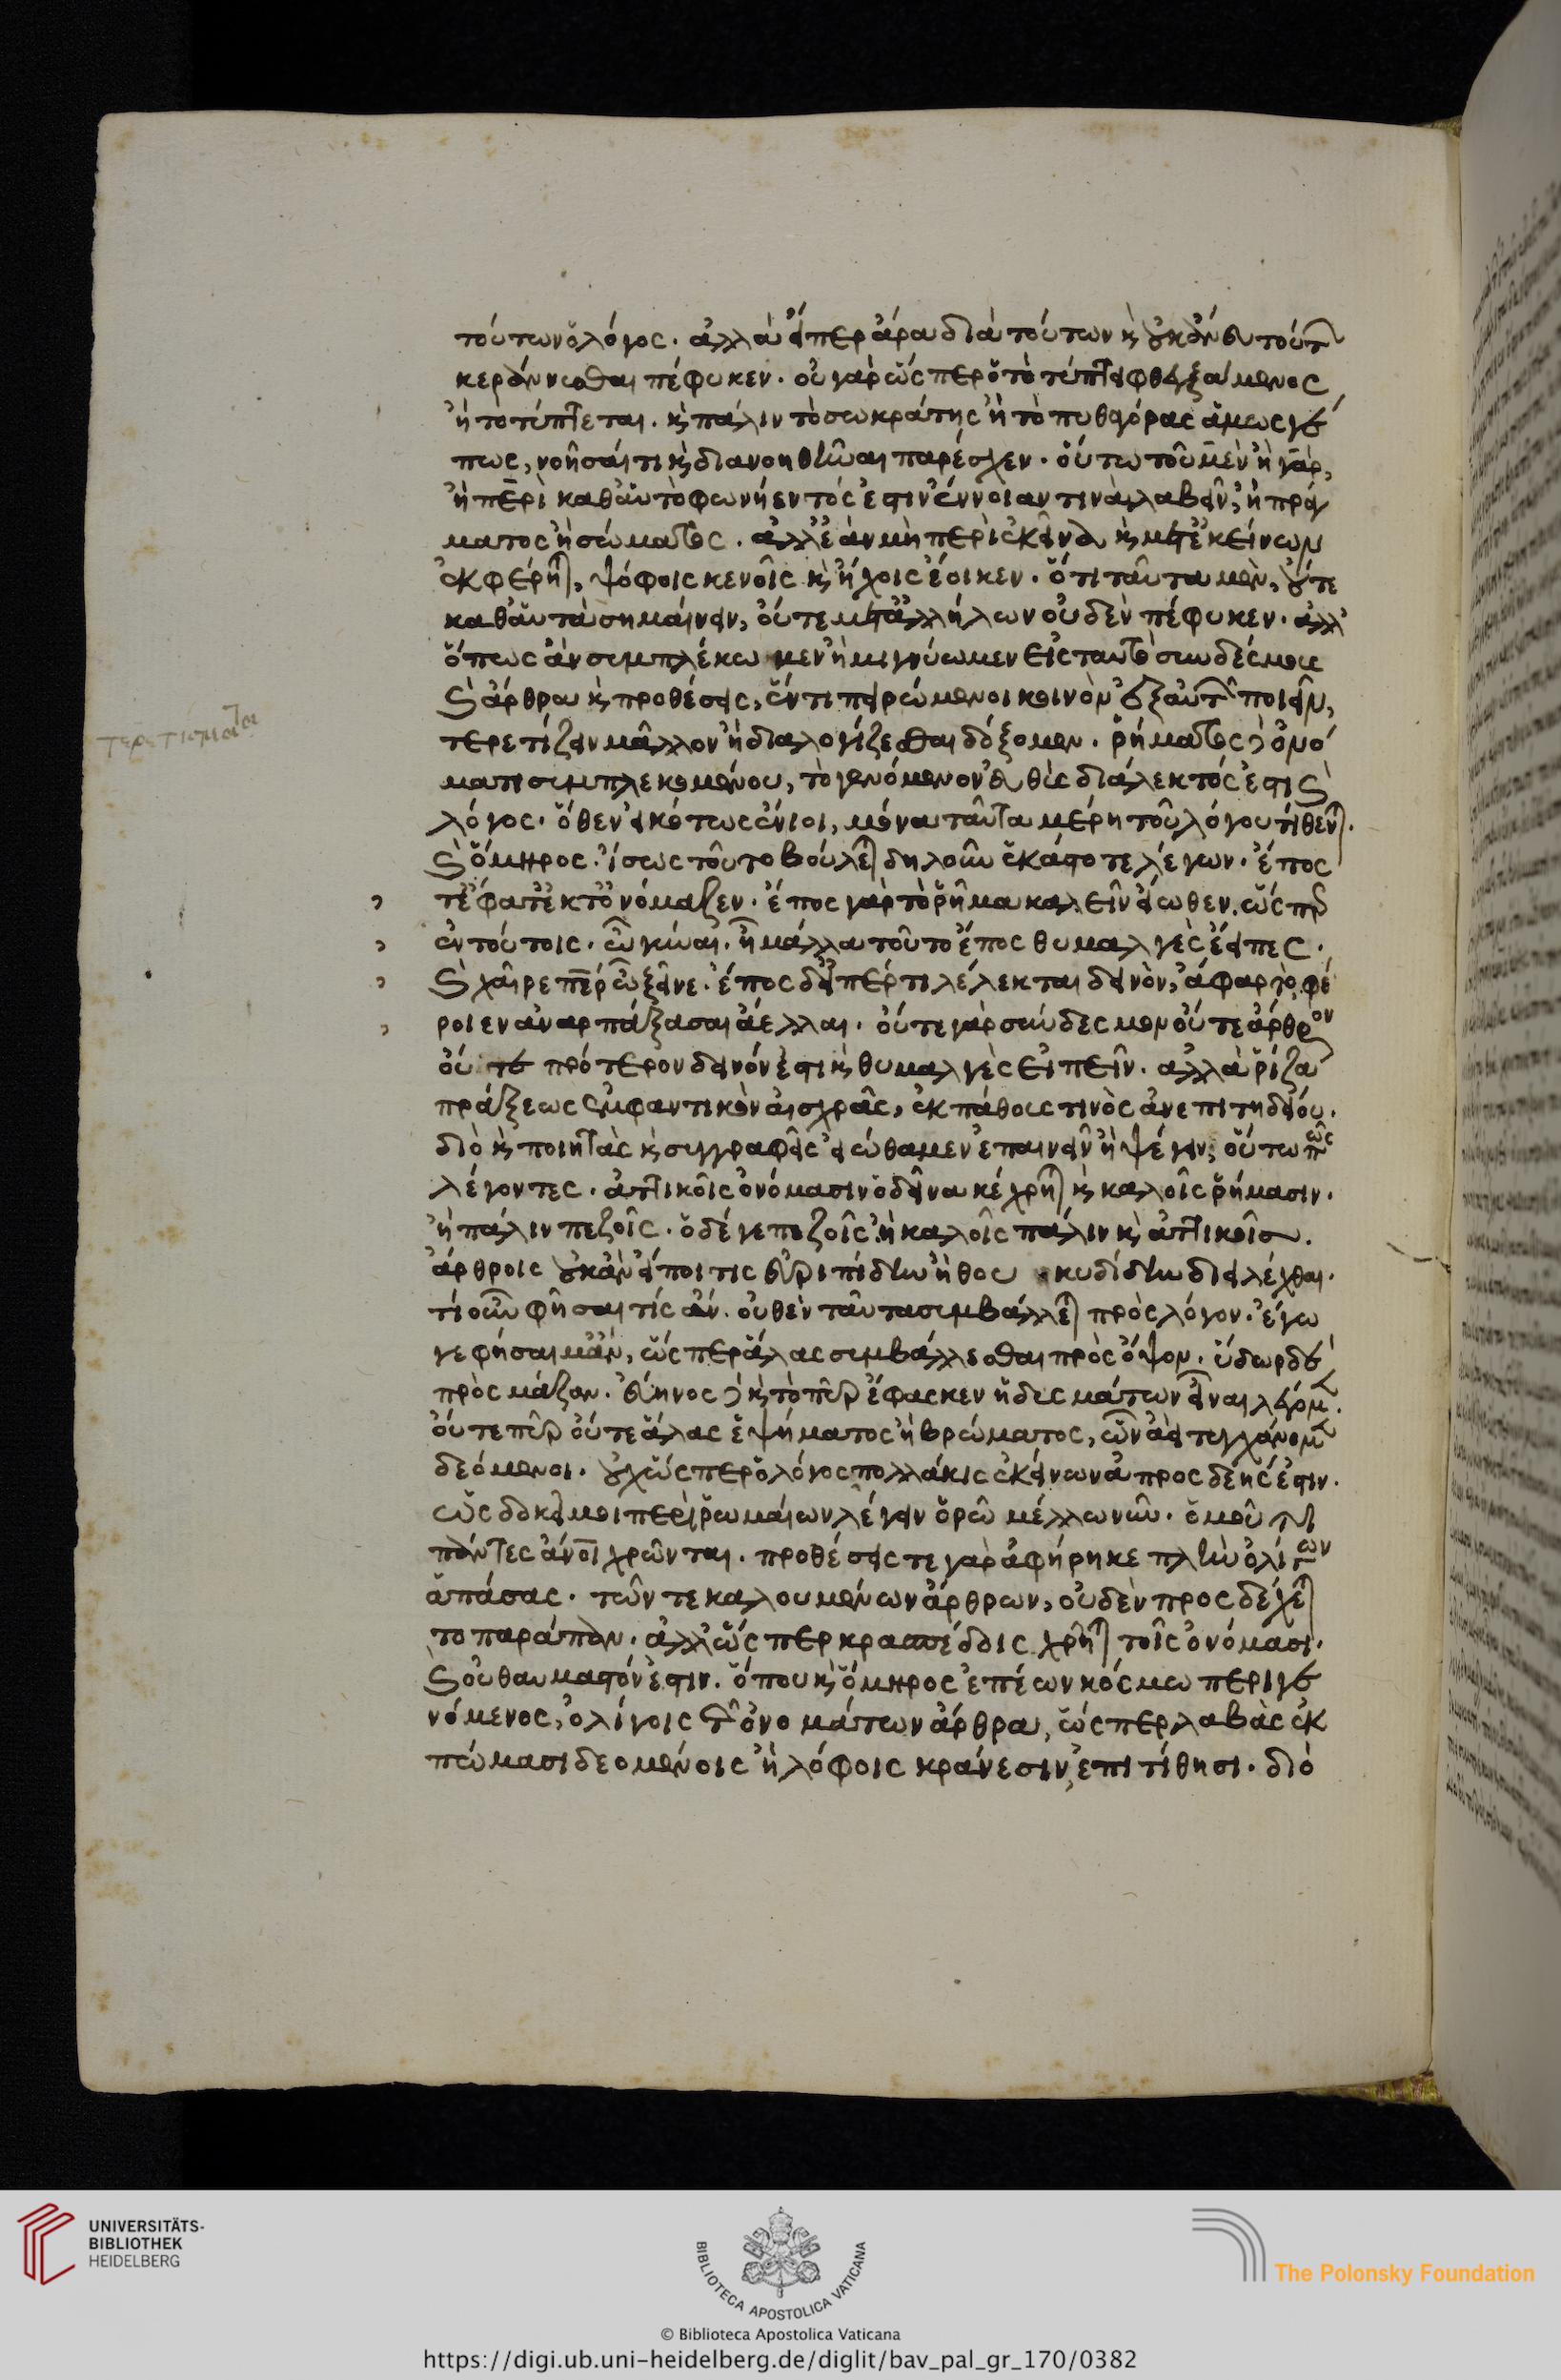 τούτων ὁ λόγος. ἀλλὰ ᾧπερ ἄρα διὰ τούτων κ̀ οὐκ ἄνευ τούτ
κεράννυσθαι πέφυκεν. οὐ γὰρ ὥσπερ ὁ τὸ τύπτει φθεγξάμενος
ἢ το τύπτεται. κ̀ πάλιν τὸ σωκράτης ἢ τὸ πυθαγόρας ἄμως γέ
πως, νοῆσαί τι κ̀ διανοηθῆναι παρέσχεν. οὕτω τοῦ μὲν ἢ γὰρ,
ἢ περὶ καθ' αὑτὸ φωνήεντός ἐστιν ἔννοιάν τινα λαβεῖν, ἢ πράγ
ματος ἢ σώματος. ἀλλ' ἐὰν μὴ περὶ ἐκεῖνα κ̀ μετ' ἐκείνων
ἐκφέρηται, ψόφοις κενοῖς κ̀ ἤχοις ἔοικεν. ὅτι ταῦτα μὲν, οὔτε
καθ' αὑτὰ σημαίνειν, οὔτε μετ' ἀλλήλων οὐδὲν πέφυκεν. ἀλλ'
ὅπως ἂν συμπλέκωμεν ἢ μιγνύωμεν εἰς ταυτὸ συνδέσμους
κ̀ ἄρθρα κ̀ προθέσεις, ἕν τι πειρώμενοι κοινὸν ἐξ αὐτῶν ποιεῖν,
τερετίσματα
τερετίζειν μᾶλλον ἢ διαλογίζεσθαι δόξομεν. ῥήματος δὲ ὀνό
ματι συμπλεκομένου, τὸ γενόμενον εὐθὺς διάλεκτός ἐστι κ̀
λόγος. ὅθεν εἰκότως ἔνιοι, μόνα ταῦτα μέρη τοῦ λόγου τίθενται.
κ̀ ὅμηρος ἴσως τοῦτο βούλεται δηλοῦν ἑκάστοτε λέγων. ἔπος
τ' ἔφατ' ἔκ τ' ὀνόμαζεν. ἔπος γὰρ τὸ ῥῆμα καλεῖν εἴωθεν. ὥσπερ
ἐν τούτοις. ὦ γύναι. ἦ μάλα τοῦτο ἔπος θυμαλγὲς ἔειπες.
κ̀ χαῖρε πάτερ ὦ ξεῖνε. ἔπος δ' εἴπέρ τι λέλεκται δεινὸν, ἄφαρ τὸ φέ
ροιεν ἀναρπάξασαι ἄελλαι. οὔτε γὰρ σύνδεσμον οὔτε ἄρθρον
οὔτε πρότερον δεινόν ἐστι κ̀ θυμαλγὲς εἰπεῖν. ἀλλὰ ῥίζα
πράξεως ἐμφαντικὸν αἰσχρᾶς, ἐκ πάθους τινὸς ἀνεπιτηδείου.
διὸ κ̀ ποιητὰς κ̀ συγγραφεῖς εἰώθαμεν ἐπαινεῖν ἢ ψέγειν, οὕτω πως
λέγοντες. ἀττικοῖς ὀνόμασιν ὁ δεῖνα κέχρηται κ̀ καλοῖς ῥήμασιν.
ἢ πάλιν πεζοῖς. ὁ δέ γε πεζοῖς ἢ καλοῖς πάλιν κ̀ ἀττικοῖς.
ἄρθροις οὐκ ἂν εἴποι τις εὐριπίδην ἢ θουκυδίδην διειλέχθαι.
τί οὖν φῆσαι τίς ἄν. οὐθὲν ταῦτα συμβάλλεται πρὸς λόγον. ἔγω
γε φήσαιμ' ἄν, ὥσπερ ἅλας συμβάλλεσθαι πρὸς ὄψον. ὕδωρ δὲ
πρὸς μάζαν. εὔηνος δὲ κ̀ τὸ πῦρ ἔφασκεν ἡδυσμάτων εἶναι
οὔτε πῦρ οὔτε ἅλας ἑψήματος ἢ βρώματος, ὧν ἀεὶ τυγχάνομεν
δεόμενοι. οὐχ ὥσπερ ὁ λόγος πολλάκις ἐκείνων ἀπροσδεής ἐστιν.
ὡς δοκεῖ μοι περὶ ῥωμαίων λέγειν ὁρῶ μέλλων νῦν. ὁμοῦ
πάντες ἄνοι χρῶνται. προθέσεις τε γὰρ ἀφήρηκε πλὴν ὀλίγων
ἁπάσας. τῶν τε καλουμένων ἄρθρων, οὐδὲν προσδέχεται
το παράπαν. ἀλλ' ὥσπερ κρασπέδοις χρῆται τοῖς ὀνόμασι.
κ̀ οὐ θαυμαστόν ἐστιν. ὅπου κ̀ ὅμηρος ἐπέων κόσμω περιγε
νόμενος, ὀλίγοις τῶν ὀνομάτων ἄρθρα, ὥσπερ λαβὰς ἐκ
πώμασι δεομένοις ἢ λόφοις κράνεσιν, ἐπιτίθησι. διό
UNIVERSITÄTS-
BIBLIOTHEK
HEIDELBERG
BIBLIOTECA APOSTOLICA VATICANA
The Polonsky Foundation
© Biblioteca Apostolica Vaticana
https://digi.ub.uni-heidelberg.de/diglit/bav_pal_gr_170/0382